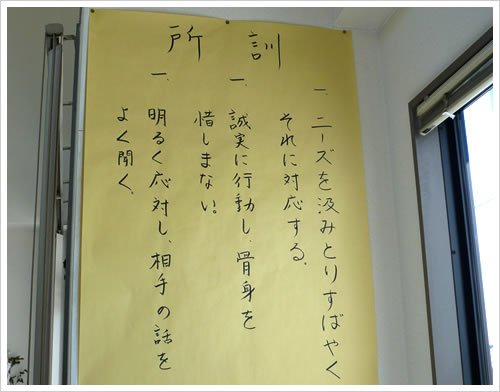 所訓
一、ニーズを汲みとりすばやく
それに対応する。
一、誠実に行動し、骨身を
惜しまない。
一、明るく応対し、相手の話を
よく聞く。